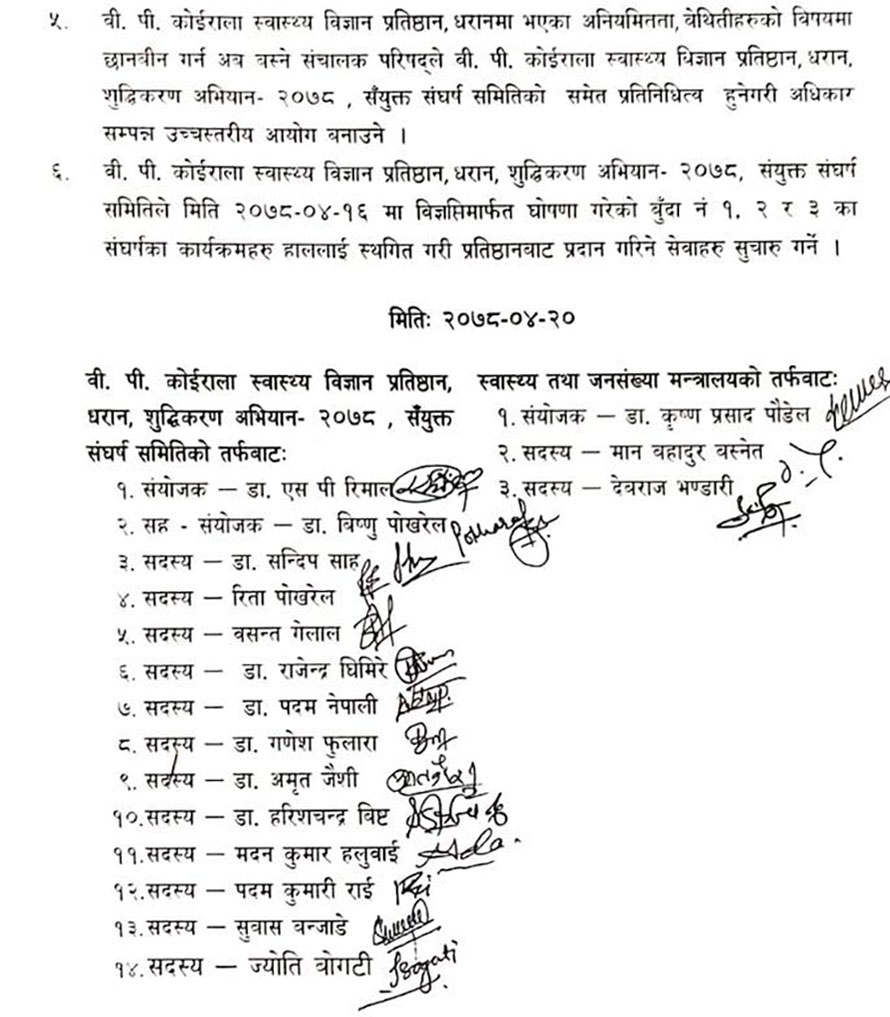 ५. वी. पी. कोईराला स्वास्थ्य विज्ञान प्रतिष्ठान, धरानमा भएका अनियमितता, वेथितीहरुको विषयमा
छानवीन गर्न अव वस्ने संचालक परिषद्ले वी. पी. कोईराला स्वास्थ्य विज्ञान प्रतिष्ठान, धरान,
शुद्धिकरण अभियान- २०७८ , सँयुक्त संघर्ष समितिको समेत प्रतिनिधित्व हुनेगरी अधिकार
सम्पन्न उच्चस्तरीय आयोग वनाउने ।
६. वी. पी. कोईराला स्वास्थ्य विज्ञान प्रतिष्ठान, धरान, शुद्धिकरण अभियान- २०७८, संयुक्त संघर्ष
समितिले मिति २०७८-०४-१६ मा विज्ञप्तिमार्फत घोषणा गरेको वुँदा नं १, २ र ३ का
संघर्षका कार्यक्रमहरु हाललाई स्थगित गरी प्रतिष्ठानवाट प्रदान गरिने सेवाहरु सुचारु गर्ने ।
मितिः २०७८-०४-२०
वी. पी. कोईराला स्वास्थ्य विज्ञान प्रतिष्ठान,
धरान, शुद्धिकरण अभियान- २०७८ , सँयुक्त
संघर्ष समितिको तर्फवाटः
१. संयोजक – डा. एस पी रिमाल
२. सह - संयोजक – डा. विष्णु पोखरेल
Pokharel
३. सदस्य – डा. सन्दिप साह
४. सदस्य – रिता पोखरेल
५. सदस्य – वसन्त गेलाल
६. सदस्य – डा. राजेन्द्र घिमिरे
७. सदस्य – डा. पदम नेपाली
८. सदस्य – डा. गणेश फुलारा
९. सदस्य – डा. अमृत जैशी
१०.सदस्य – डा. हरिशचन्द्र विष्ट
११.सदस्य – मदन कुमार हलुवाई
१२.सदस्य – पदम कुमारी राई
१३.सदस्य – सुवास वन्जाडे
१४.सदस्य – ज्योति वोगटी
Bogati
स्वास्थ्य तथा जनसंख्या मन्त्रालयको तर्फवाटः
१. संयोजक – डा. कृष्ण प्रसाद पौडेल
२. सदस्य – मान वहादुर वस्नेत
३. सदस्य – देवराज भण्डारी